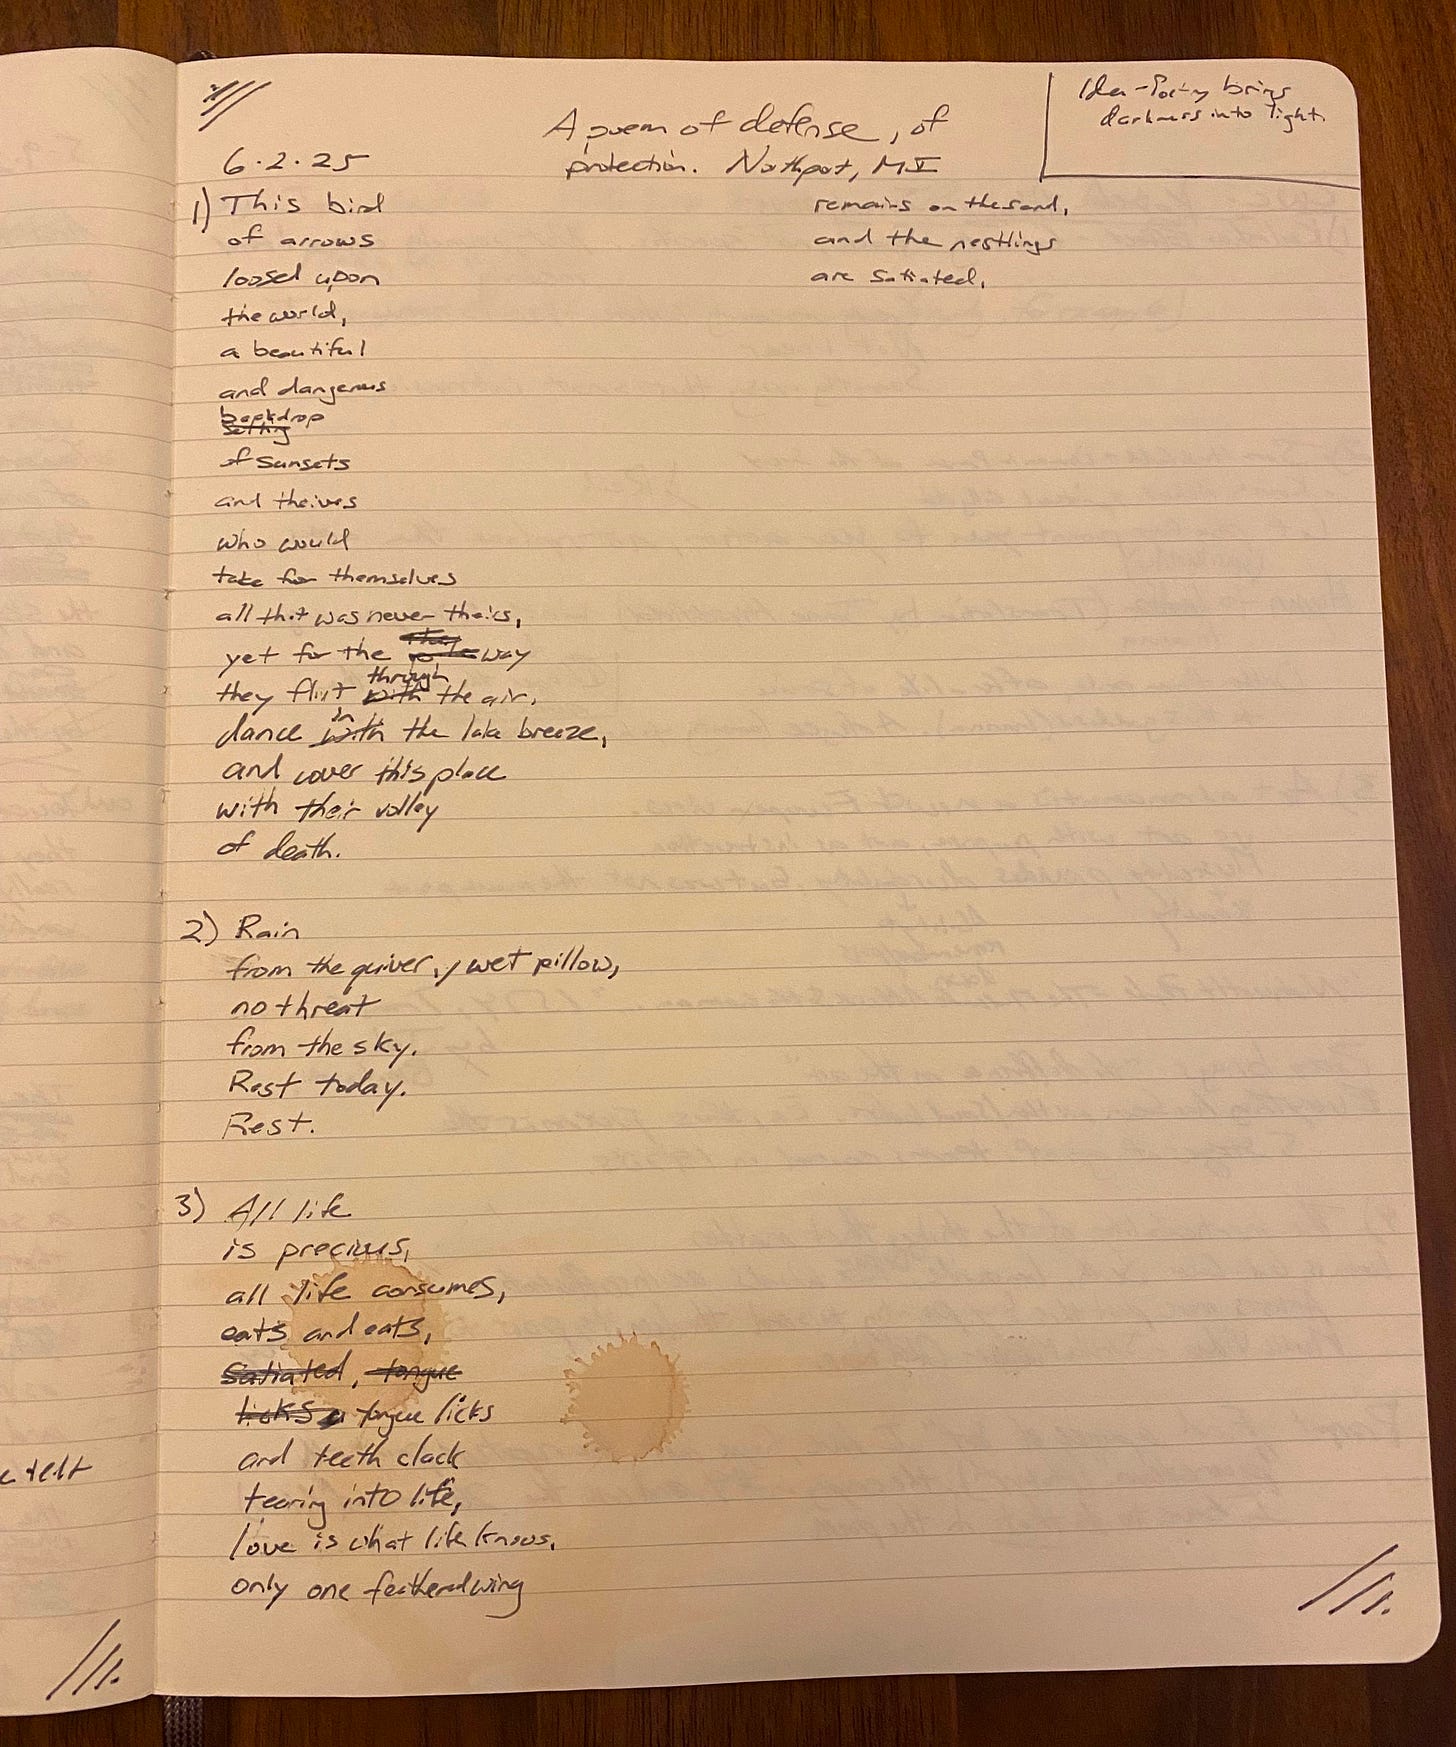 Idea - Poetry brings
darkness into light.
A poem of defense, of
protection. Northport, MI
6.2.25
1) This bird
of arrows
loosed upon
the world,
a beautiful
and dangerous
backdrop
setting
of sunsets
and theives
who would
take for themselves
all that was never theirs,
yet for the way
through
they flirt with the air,
in
dance with the lake breeze,
and cover this place
with their volley
of death.
2) Rain
from the quiver, / wet pillow,
no threat
from the sky.
Rest today.
Rest.
3) All life
is precious,
all life consumes,
eats and eats,
Satiated, tongue
licks tongue licks
and teeth clack
tearing into life,
love is what life knows,
only one feathered wing
remains on the sand,
and the nestlings
are satiated.
felt